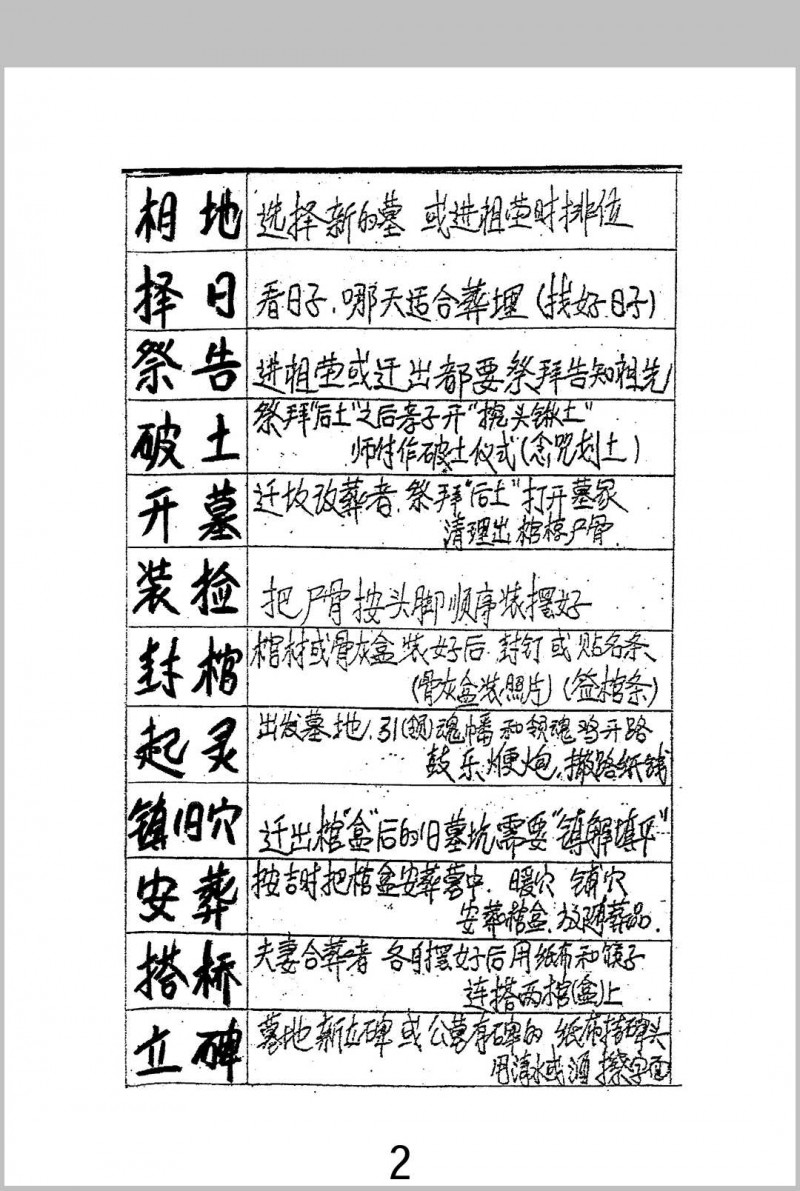 相地 选择新的墓 或进祖茔时排位
择日 看日子.哪天适合葬埋(找好日子)
祭告 进祖茔或迁出都要祭拜告知祖先
破土 祭拜"后土"之后孝子开"挖头锹土"
师付作破土仪式(念咒划土)
开墓 迁坟改葬者.祭拜"后土"打开墓冢
清理出棺椁尸骨.
装捡 把尸骨按头脚顺序装摆好
封棺 棺材或骨灰盒装好后.封钉或贴名条
(骨灰盒装照片)(签棺条)
起灵 出发墓地.引(领)魂幡和领魂鸡开路
鼓乐鞭炮.撒路纸钱
镇旧穴 迁出棺"盒"后的旧墓坑需要"镇解填平"
安葬 按吉时把棺盒安葬墓中.暖穴 铺穴
安葬棺盒.放随葬品.
搭桥 夫妻合葬者 各自摆好后用纸布和筷子
连搭两棺(盒)上
立碑 墓地新立碑或公墓有碑的 纸布搭碑头
用清水或酒擦字面
2